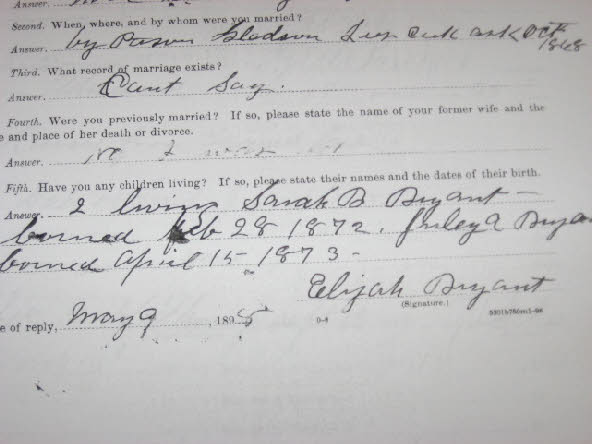 Answer.
Second. When, where, and by whom were you married?
Answer. by Parson Gladson Oct
1868
Third. What record of marriage exists?
Answer. Cant Say.
Fourth. Were you previously married? If so, please state the name of your former wife and the
e and place of her death or divorce.
Answer. No I was
Fifth. Have you any children living? If so, please state their names and the dates of their birth.
Answer. 2 living Sarah B Bryant -
borned Feb 28 1872. Bryan
borned April 15- 187 3-
Elijah Bryant
(Signature.)
e of reply, May 9, 1895 0-4